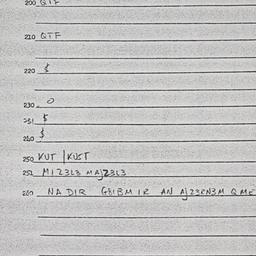 200 QTF
210 QTF
220 $
230 0
231 $
240 $
250 KUT | KUST
252 MIZ3L3 MAJZ3L3
260 NADIR G818M IR AN AJ23RN3M QME